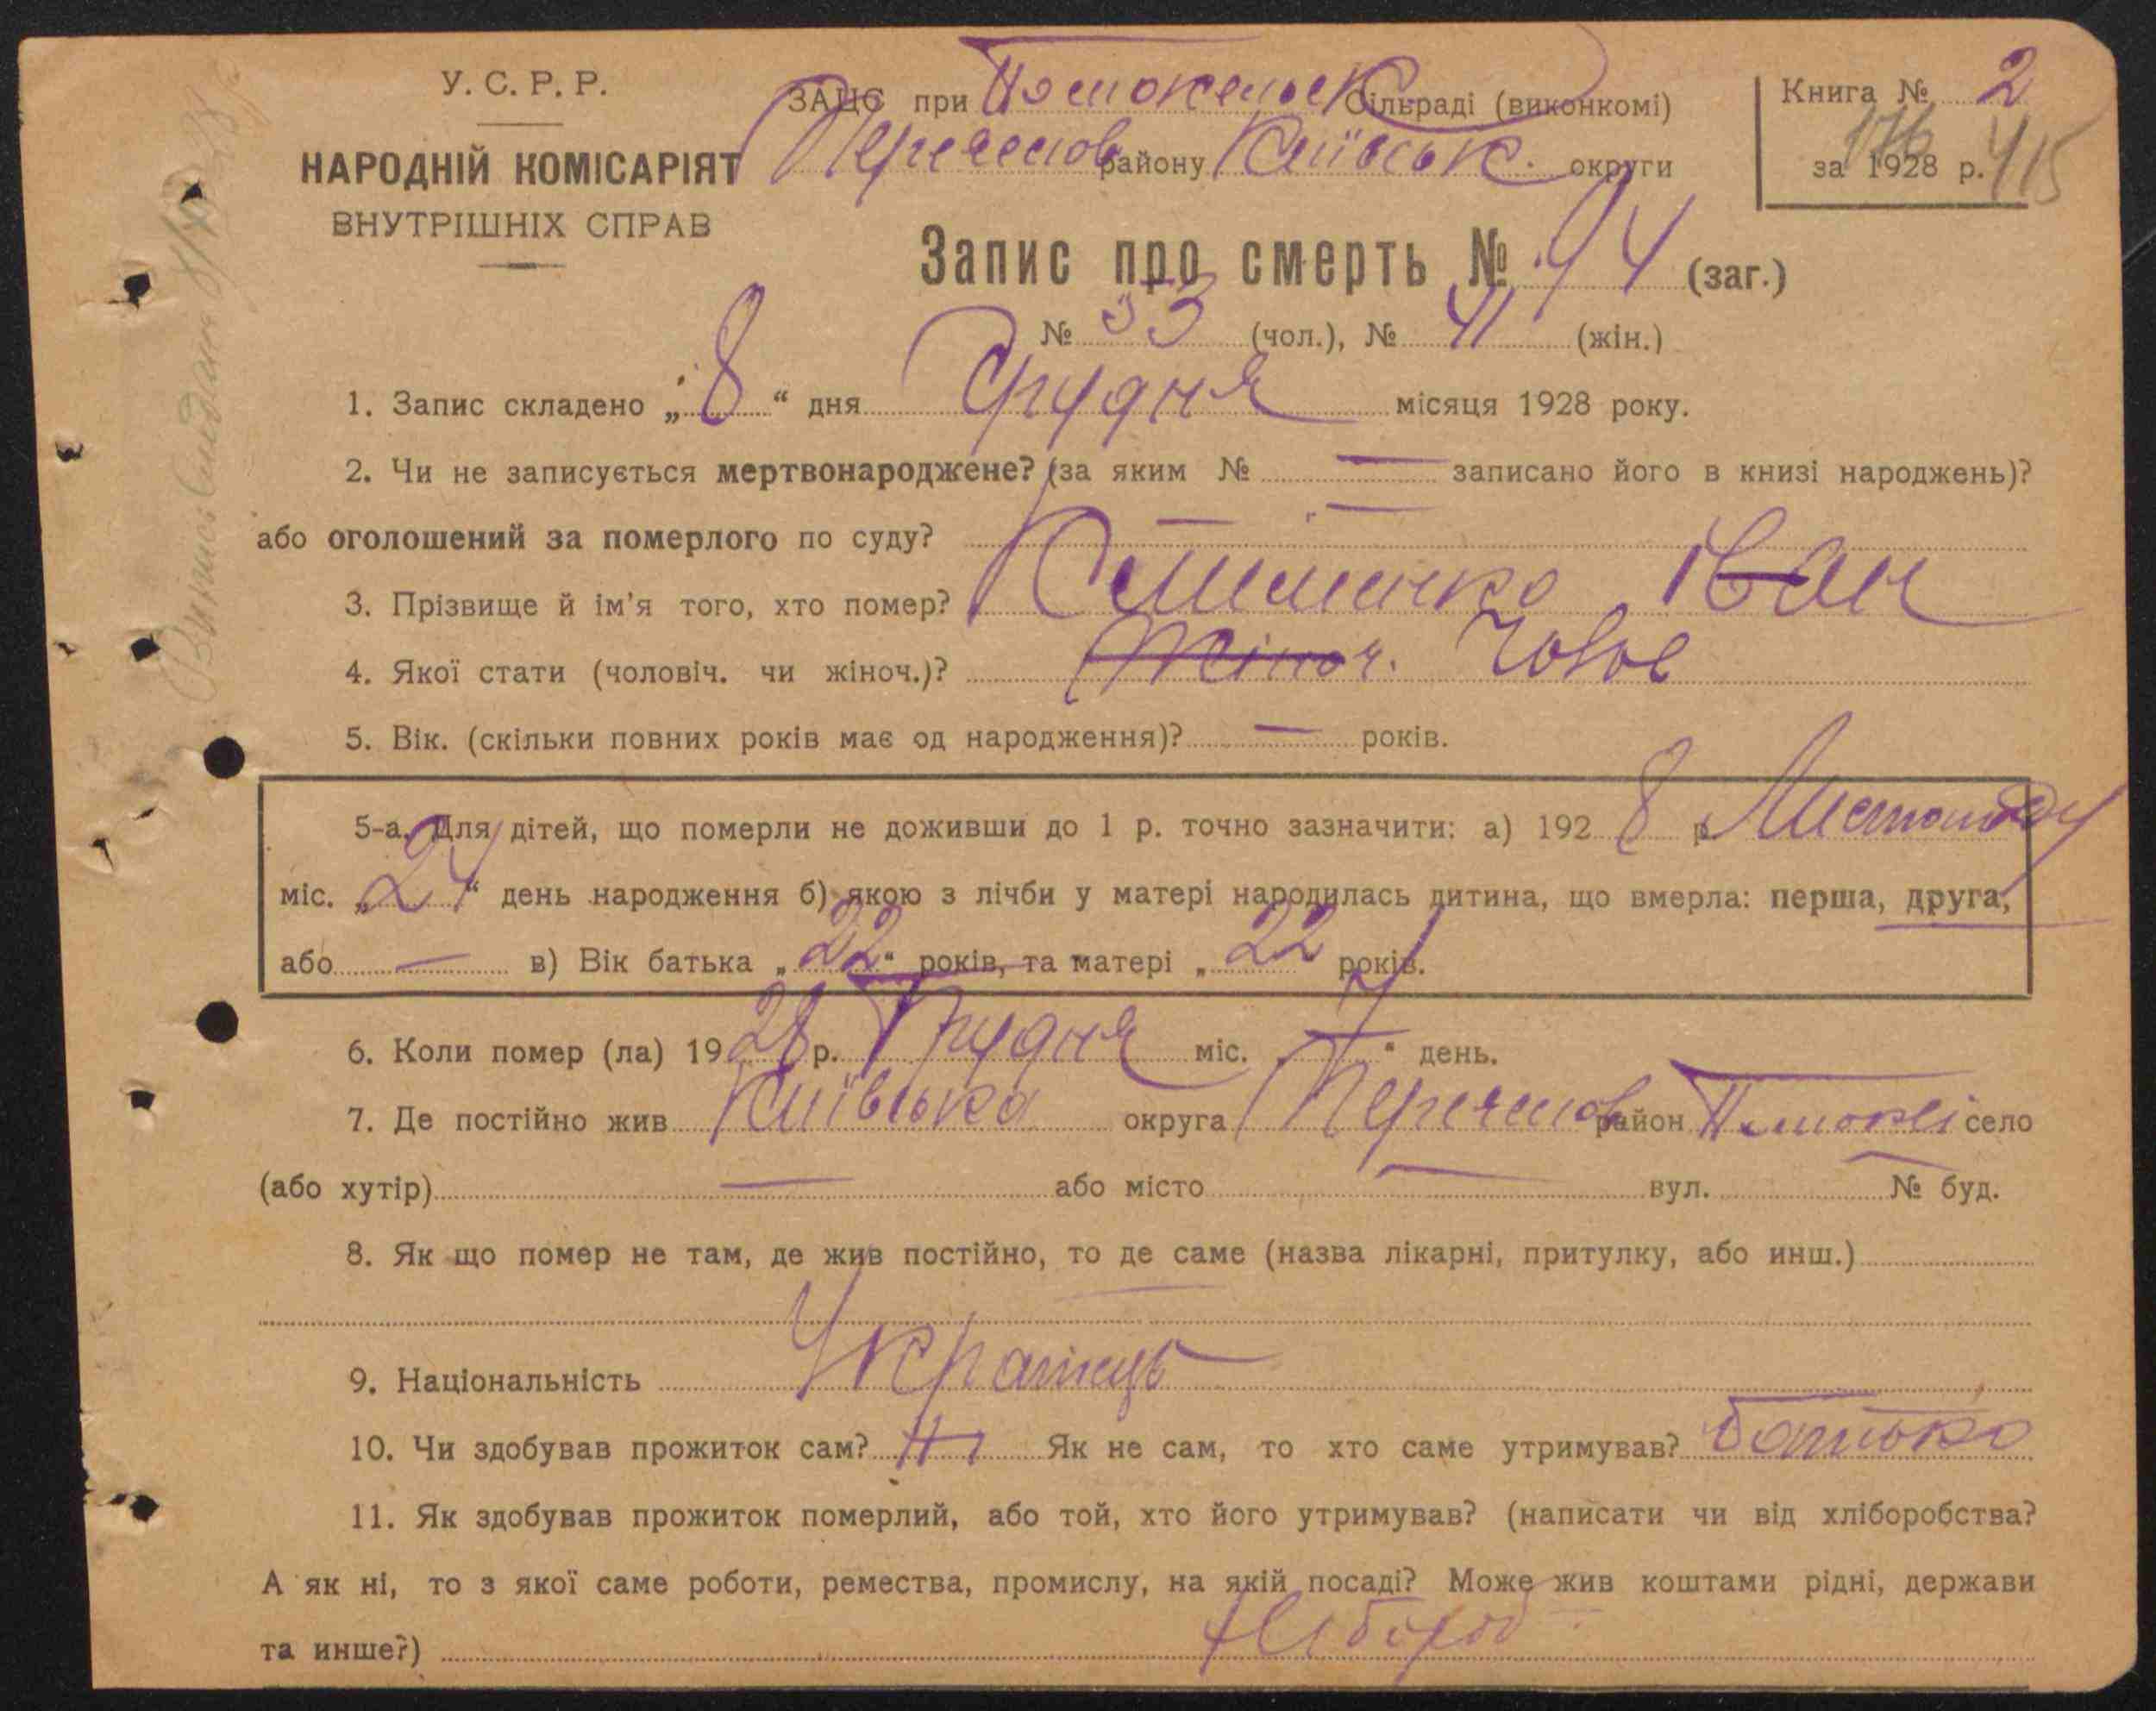 У. С. Р. Р.
НАРОДНІЙ КОМІСАРІЯТ
ВНУТРІШНІХ СПРАВ
ЗАЦС при Сільраді (виконкомі)
району Київськ. округи
Книга № 2
176
за 1928 р. 415
Запис про смерть № 94 (заг.)
№ 53 (чол.), № 41 (жін.)
1. Запис складено „8“ дня Грудня місяця 1928 року.
2. Чи не записується мертвонароджене? (за яким № — записано його в книзі народжень)?
або оголошений за померлого по суду? — —
3. Прізвище й ім'я того, хто помер? Іван
4. Якої стати (чоловіч. чи жіноч.)? Жіноч. Чолов
5. Вік. (скільки повних років має од народження)? — років.
5-а. Для дітей, що померли не доживши до 1 р. точно зазначити: а) 1928 р. Листопаду
міс. „24“ день народження б) якою з лічби у матері народилась дитина, що вмерла: перша, друга,
або — в) Вік батька „22“ років, та матері „22 років.
6. Коли помер (ла) 1928 р. Грудня міс. „7“ день.
7. Де постійно жив Київська округа район село
(або хутір) — або місто — вул. — № буд.
8. Як що помер не там, де жив постійно, то де саме (назва лікарні, притулку, або инш.)
—
9. Національність Українець
10. Чи здобував прожиток сам? Ні Як не сам, то хто саме утримував? Батько
11. Як здобував прожиток померлий, або той, хто його утримував? (написати чи від хліборобства?
А як ні, то з якої саме роботи, ремества, промислу, на якій посаді? Може жив коштами рідні, держави
та инше?) Хлібороб